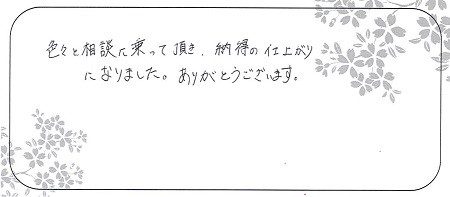 色々と相談に乗って頂き、納得の仕上がり
になりました。ありがとうございます。